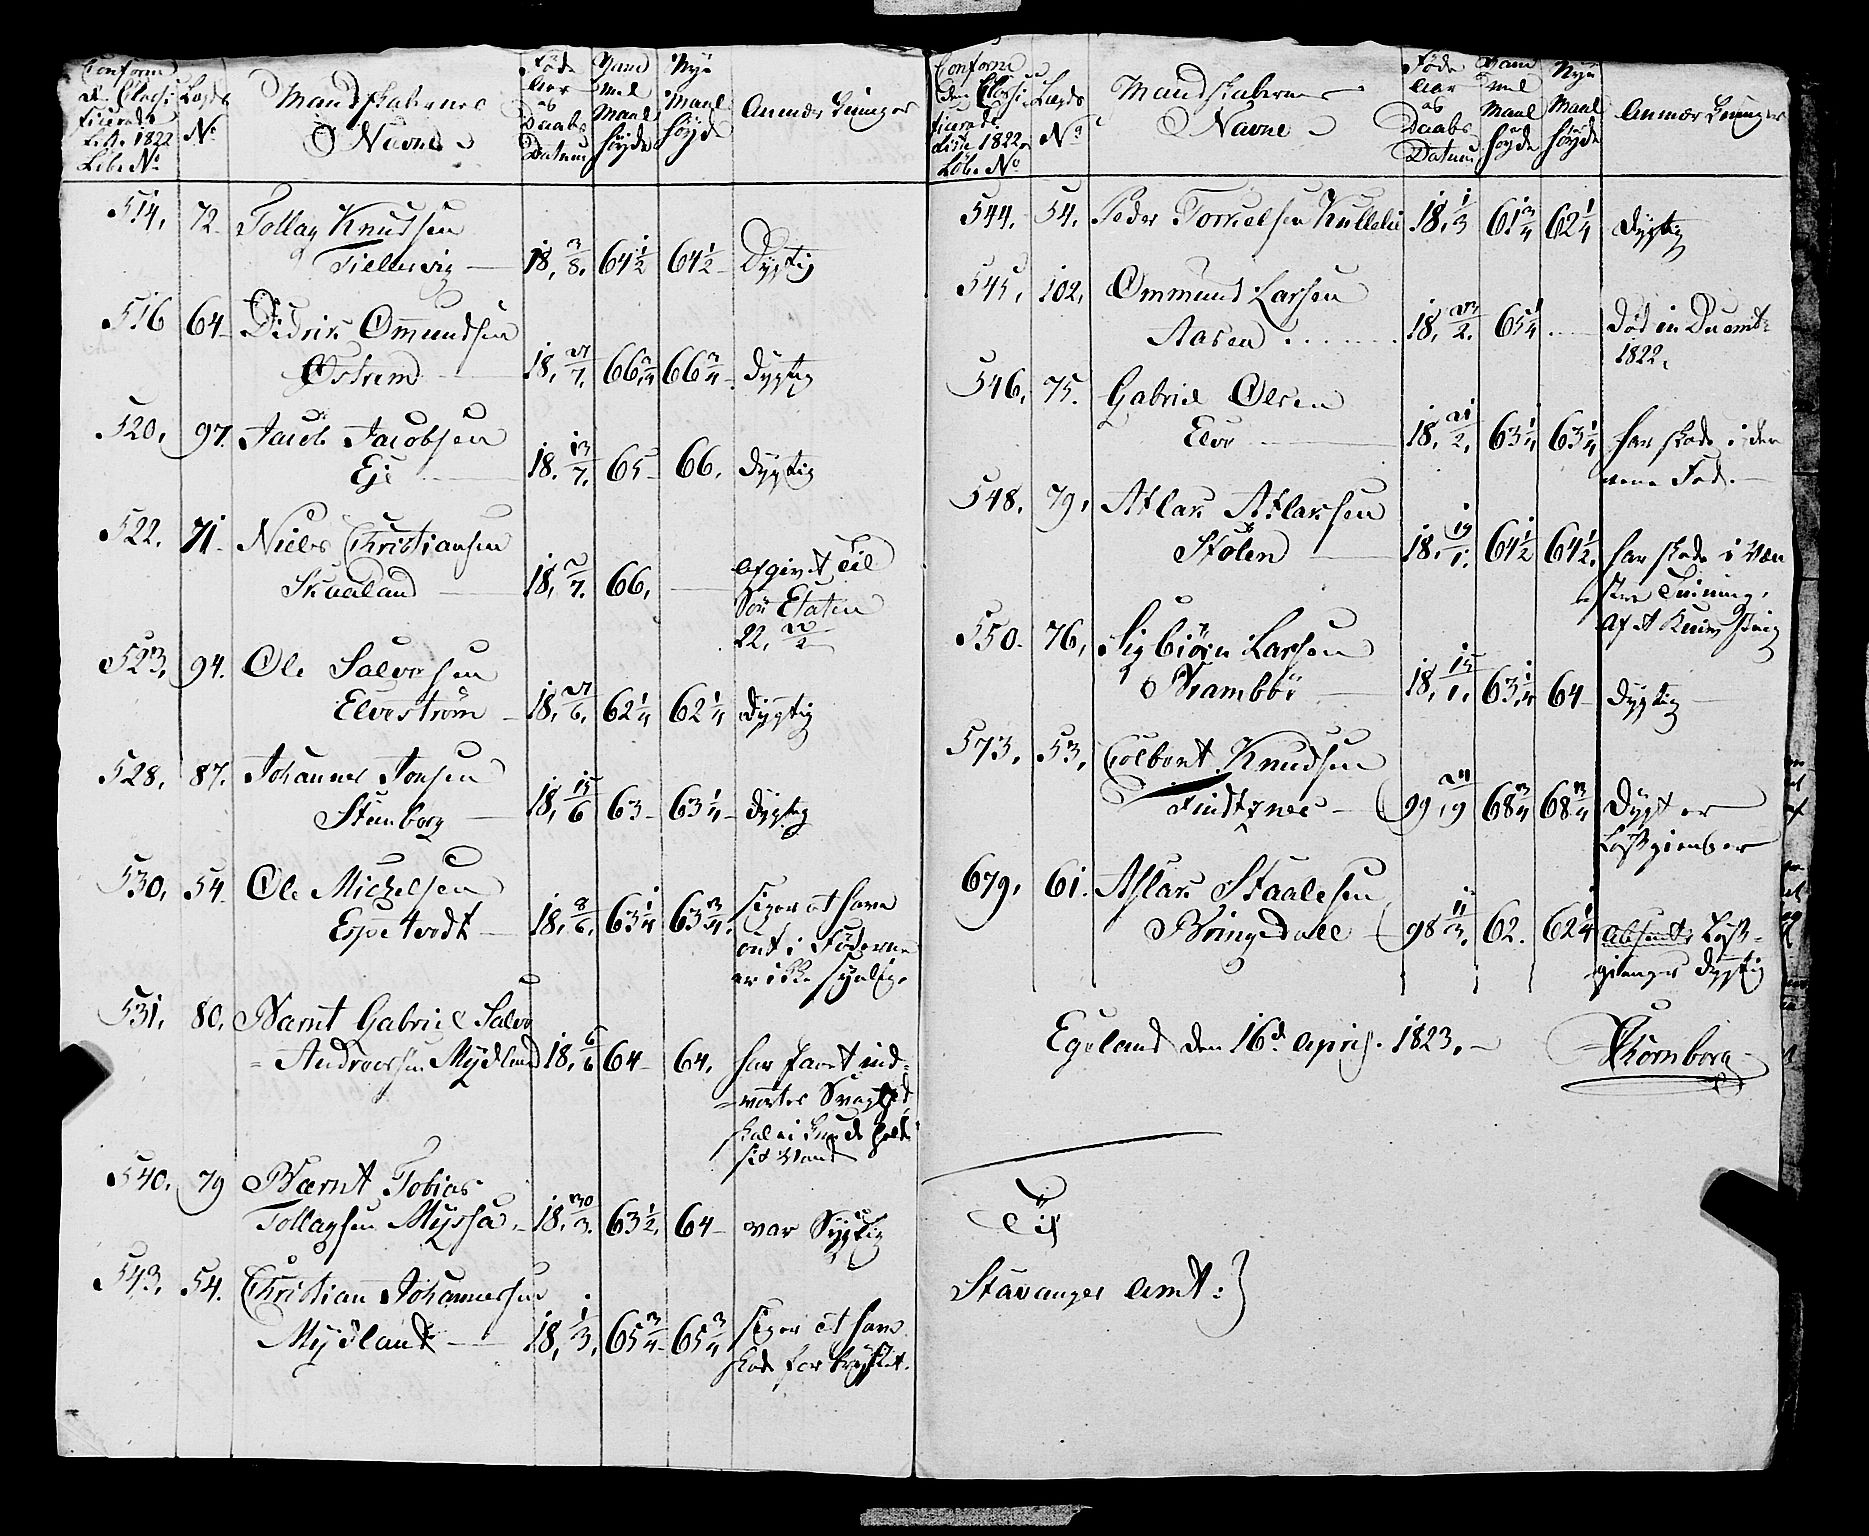 Conforme
den Classi
ficerede
List. 1822
Løb. No
Lægds
No
Mandskabernes
Navne
Føde
Aar
og
Daabs
Datum
Gam
mel
Maal
høyde
Nye
Maal
høyde
Anmærkninger
514. 72. Tollag Knudsen
Fiellesvig 18, 3/8. 64 1/2 64 1/2 Dygtig
516 64 Didrik Ommundsen
Østrem 18, 27/7. 66 3/4 66 3/4 Dygtig
520. 97. Jacob Jacobsen
Eje 18. 13/7. 65 66. Dygtig
522. 71. Niels Christiansen
Skaaland 18, 2/7. 66, Afgivet til
Søe Etaten
22, 22/2
523. 94. Ole Salvesen
Elvestrøm 18, 27/6. 62 1/4 62 1/4 Dygtig
528. 87. Johannes Jonsen
Steenborg 18, 15/6 63 63 1/4 Dygtig
530. 54. Ole Michelsen
Espetvedt 18, 8/6. 63 1/4 63 3/4. siger at have
ont i Føderne
er ikke synlig.
531. 80. Bærnt Gabriel Salve
Andreassen Mydland 18, 6/6 64 64. har havt ind=
=vortes Svaghed,
skal ei kunde holde
sit Vand
540. 79 Bærnt Tobias
Tollagsen Myssa 18. 30/3. 63 1/2. 64 var Sygtig
543. 54. Christian Johannessen
Mydland 18, 1/3, 65 3/4 65 3/4 siger at have
skade for brystet.
Conforme
den Classi
ficerede
Liste 1822
Løb. No
Lægds
No
Mandskabernes
Navne
Føde
Aar
og
Daabs
Datum
Gam
mel
Maal
høyde
Nye
Maal
høyde
Anmærkninger
544. 54. Peder Torkelsen Kullelie 18, 1/3 61 3/4 62 1/4 Dygtig
545. 102. Ommund Larsen
Aasen 18, 23/2. 65 1/4 Død in Decembr
1822.
546. 75. Gabriel Olsen
Elve 18, 21/2. 63 1/4 63 1/4 har skade i den
ene Fod.
548. 79. Atlak Atlaksen
Stølen 18, 19/1. 64 1/2 64 1/2. har skade i ven
stre Tinning,
af et
550. 76. Sigbiørn Larsen
Brambøe 18, 15/1. 63 1/4 64 Dygtig
573. 53. Colbent Knudsen
99 24/9 68 3/4 68 3/4 Dygt er
Løsgienger
679. 61. Aslak Staalesen
Bringedall 98 11/3. 62. 62 1/4 absent, Løs=
gienger Dygtig
Egeland den 16d April. 1823.
Thornborg
Til
Stavanger Amt: